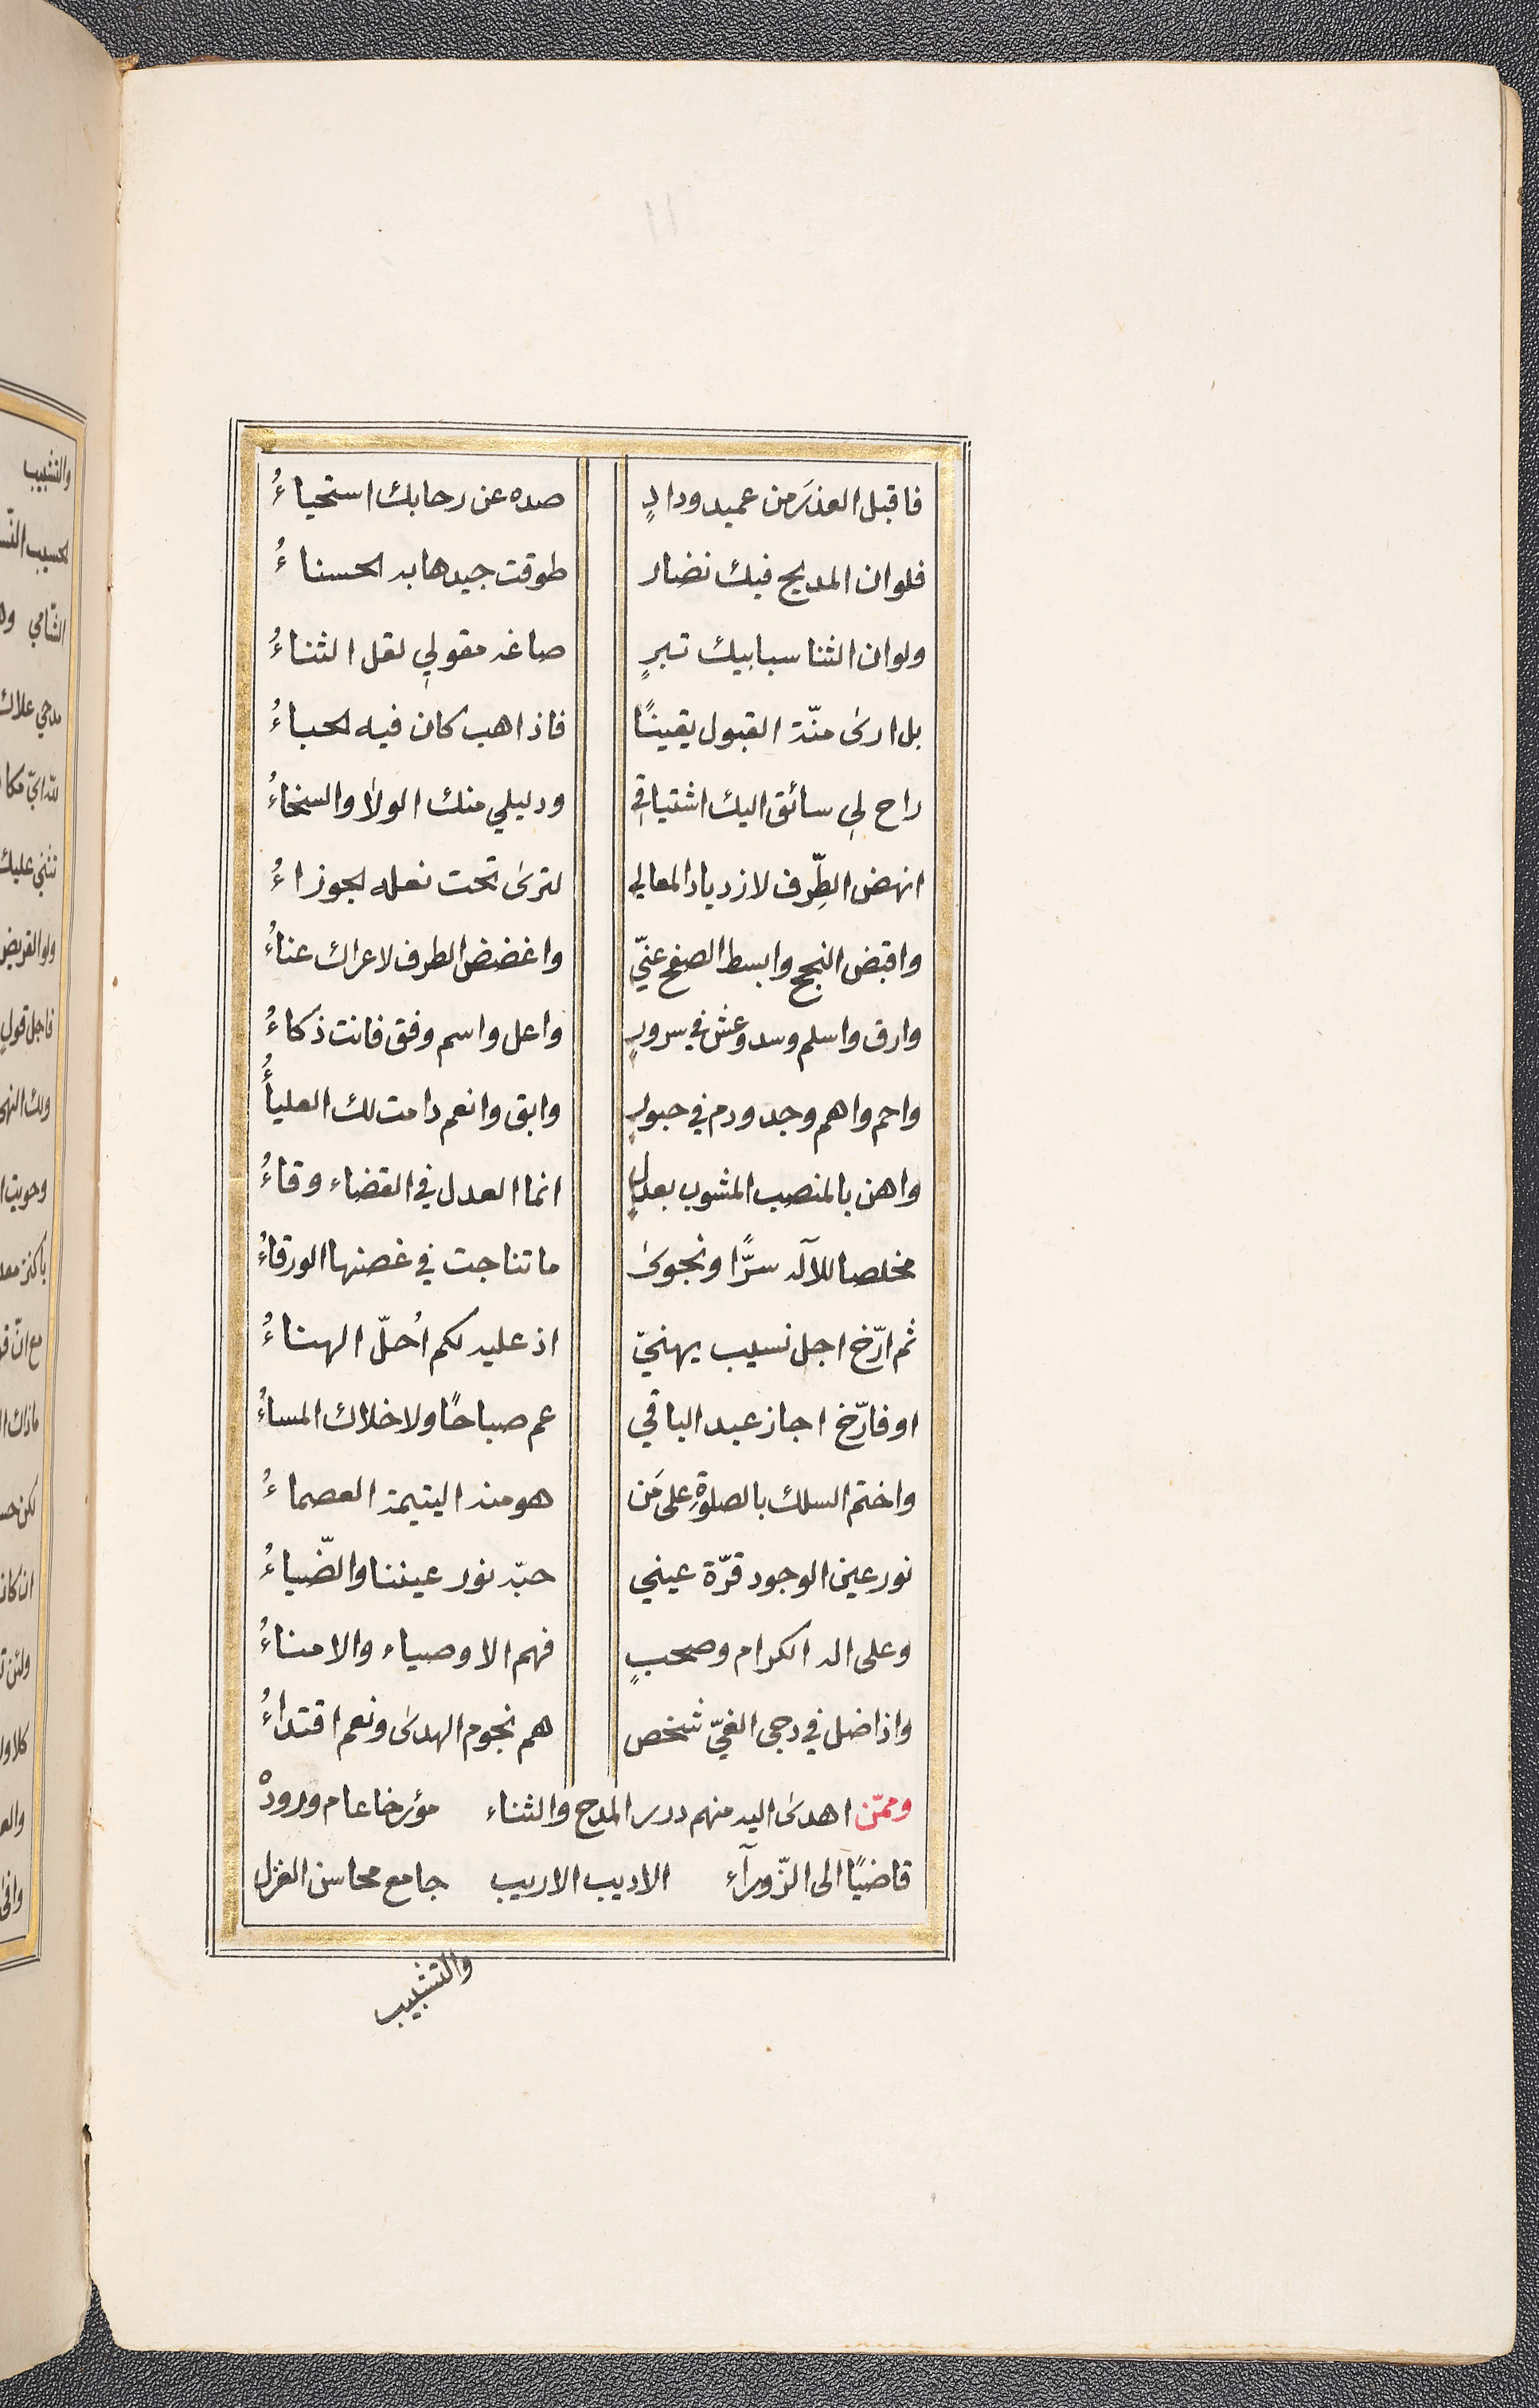 ١١
فاقبل العذرَ من عميد ودادٍ صده عن رحابك استحياءُ
فلوان المديح فيك نضار طوقت جيدها به الحسناءُ
ولوان الثنا سبابيك تبرٍ صاغه مقولي لقل الثناءُ
بل ارى منّة القبول يقينًا فاذا هب كان فيه الحباءُ
راح لي سائق اليك اشتياقي ودليلي منك الولا والسخاءُ
انهض الطِّرف لازدياد المعالي لترى تحت نعله الجوزاءُ
واقبض النجح وابسط الصفح عنّي واغضض الطرف لاعراك عناءُ
وارق واسلم وسد وعش في سرورٍ واعل واسم وفق فانت ذكاءُ
واحم واهم وجد ودم في حبورٍ وابق وانعم دامت لك العلياءُ
واهن بالمنصب المشوب بعدلٍ انما العدل في القضاء وقاءُ
مخلصا للآله سرًّا ونجوى ما تناجت في غصنها الورقاءُ
ثم ارّخ اجل نسيب يهنيّ اذ عليه لكم اُحلّ الهناءُ
او فارّخ اجاز عبد الباقي عم صباحًا ولا خلاك المساءُ
واختم السلك بالصلوةِ على مَن هو منه اليتيمة العصماءُ
نور عين الوجود قرّة عيني حبّه نور عيننا والضّياءُ
وعلى اله الكرام وصحبٍ فهم الاوصياء والامناءُ
واذا ضل في دجى الغيّ شخص هم نجوم الهدى ونعم اقتداءُ
وممّن اهدى اليه منهم درر المدح والثناء مؤرخا عام ورودهْ
قاضيًا الى الزّورآء الاديب الاريب جامع محاسن الغزل
والتشبيب